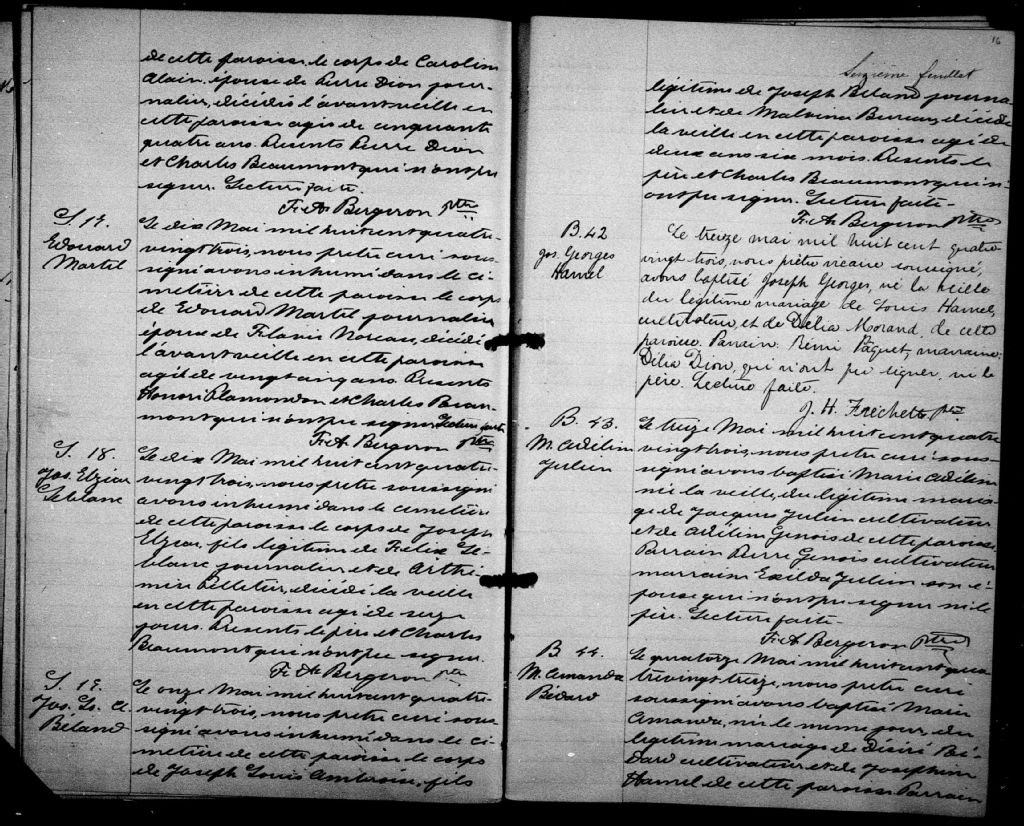 de cette paroisse, le corps de Caroline
Alain, épouse de Pierre Dion jour-
nalier, décédée l'avant veille en
cette paroisse agée de cinquante
quatre ans. Présents Pierre Dion
et Charles Beaumont qui n'ont pu
signer. Lecture faite.
F. A. Bergeron ptre
S. 17.
Edouard
Martel
Le dix Mai mil huit cent quatre-
vingt trois, nous prêtre curé sous-
signé avons inhumé dans le ci-
metière de cette paroisse le corps
de Edouard Martel journalier
époux de Flavie Noreau, décédé
l'avant veille en cette paroisse
agé de vingt cinq ans. Présents
Honoré Plamondon et Charles Beau-
mont qui n'ont pu signer. Lecture faite
F. A. Bergeron ptre
S. 18.
Jos. Elzéar
Leblanc
Le dix Mai mil huit cent quatre-
vingt trois, nous prêtre soussigné
avons inhumé dans le cimetière
de cette paroisse le corps de Joseph
Elzéar, fils légitime de Félix Le-
blanc journalier et de Arthé-
mise Pelletier, décédé la veille
en cette paroisse agé de
jours. Présents le père et Charles
Beaumont qui n'ont pu signer.
F. A. Bergeron ptre
S. 19.
Jos. Ls. A.
Béland
Le onze Mai mil huit cent quatre-
vingt trois, nous prêtre curé sous-
signé avons inhumé dans le ci-
metière de cette paroisse le corps
de Joseph Louis Ambroise, fils
16
Seizième feuillet
légitime de Joseph Béland journa-
lier et de Malvina Bureau, décédé
la veille en cette paroisse agé de
deux ans six mois. Présents le
père et Charles Beaumont qui n'-
ont pu signer. Lecture faite-
F. A. Bergeron ptre
B. 42
Jos. Georges
Hamel
Le treize mai mil huit cent quatre
vingt trois, nous prêtre vicaire soussigné,
avons baptisé Joseph Georges, né la veille
du légitime mariage de Louis Hamel,
cultivateur, et de Délia Morand de cette
paroisse. Parrain Rémi Paquet, marraine
Délia Dion, qui n'ont pu signer, ni le
père. Lecture faite.
J. H. Fréchette ptre
B. 43.
M. Adélina
Julien
Le treize Mai mil huit cent quatre
vingt trois, nous prêtre curé sous-
signé avons baptisé Marie Adélina
née la veille, du légitime maria-
ge de Jacques Julien cultivateur
et de Adélina Genois de cette paroisse.
Parrain Pierre Genois cultivateur
marraine Exilda Julien son é-
pouse qui n'ont pu signer ni le
père. Lecture faite-
F. A. Bergeron ptre
B. 44.
M. Amanda
Bédard
Le quatorze Mai mil huit cent qua-
tre vingt treize, nous prêtre curé
soussigné avons baptisé Marie
Amanda, née le même jour, du
légitime mariage de Désiré Bé-
dard cultivateur et de Joséphine
Hamel de cette paroisse Parrain